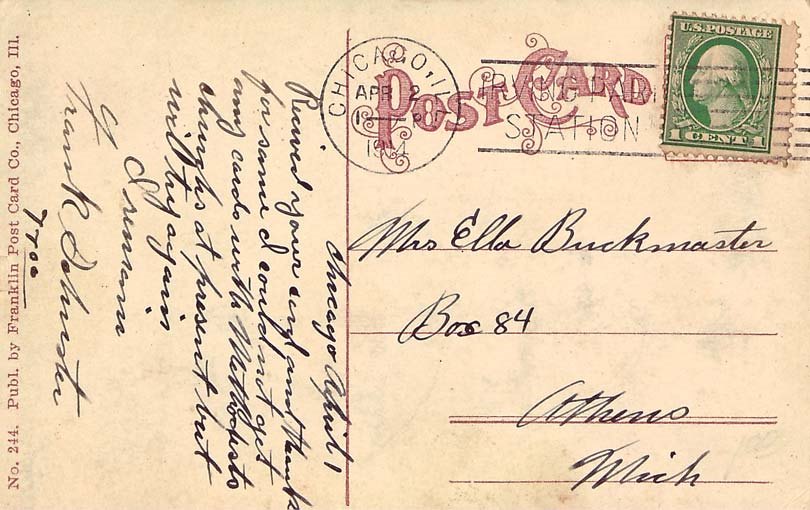 No. 244. Publ. by Franklin Post Card Co., Chicago, Ill.
POST CARD
CHICAGO, ILL.
APR 2
1914
IRVING PARK
STATION
U.S. POSTAGE
1 CENT 1
Chicago April 1
Recived your card and thank
for same I could not get
any cards with Methodists
churghs at present but
will try again
I remain
Frank Schuster
7706
Mrs Ella Buckmaster
Box 84
Athens
Mich